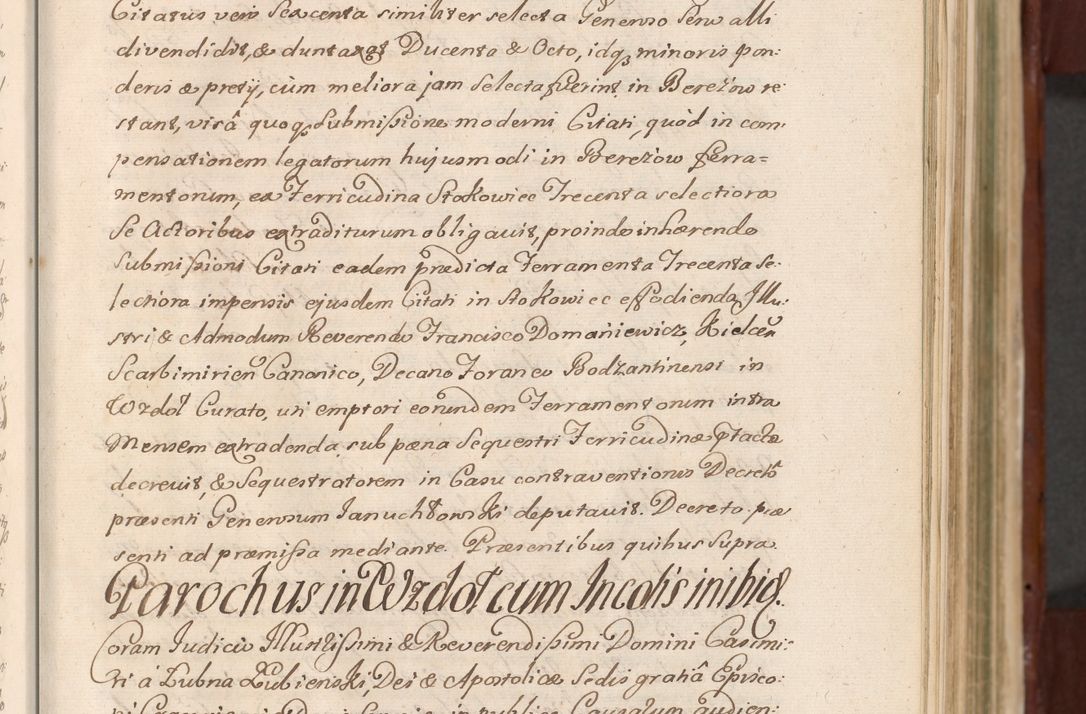 Citatus vero Sexcenta similiter selecta Generoso Serw alli
divendidit, & duntaxat Ducenta & Octo, idq3 minoris pon:
deris & pretij, cùm meliora jam selecta fuerint in Bereżow re:
stant, visâ quoq3 submissione moderni Citati, quòd in com:
pensationem legatorum hujusmodi in Bereżow ferra=
mentorum, ex Ferricudina Stokowiec Trecenta selectiora
Se Actoribus extraditurum obligavit, proinde inhærendo
submissioni Citati eadem prædicta Ferramenta Trecenta se:
lectiora impensis ejusdem Citati in Stokowiec effodienda Illu:
stri & Admodum Reverendo Francisco Domaniewicz, Kielceñ
Scarbimirieñ Canonico, Decano Foraneo Bodzantinensi in
Wzdoł Curato, uti emptori eorundem Ferramentorum intra
Mensem extradenda, sub pæna Sequestri Ferricudinæ ptactæ
decrevit, & Sequestratorem in Casu contraventionis Decreto
præsenti Generosum Januchtowski deputavit. Decreto præ
senti ad præmissa mediante. Præsentibus quibus supra.
Parochus in Wzdoł cum Incolis inibiq3.
Coram Judicio Illustrissimi & Reverendissimi Domini Casimi:
ri à Łubna Łubienski, Dei & Apostolicæ Sedis gratiâ Episco:
pi in publica Causarum audien: